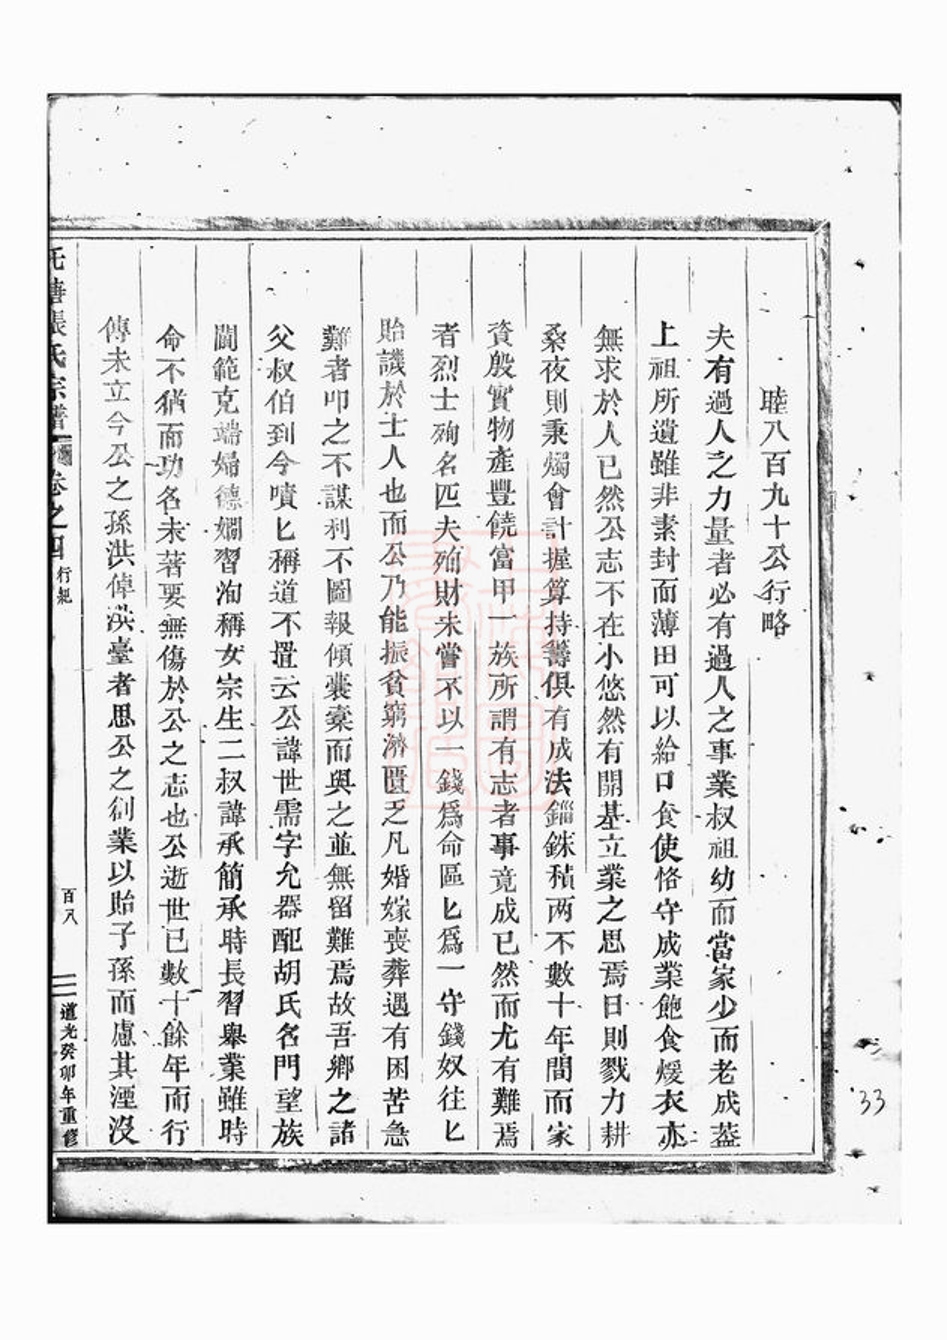 睦八百九十公行略
夫有過人之力量者必有過人之事業叔祖幼而當家少而老成葢
上祖所遺雖非素封而薄田可以給口食使恪守成業飽食煖衣亦
無求於人已然公志不在小悠然有開基立業之思焉日則戮力耕
桑夜則秉燭會計握算持籌俱有成法錙銖積两不數十年間而家
資殷實物產豐饒富甲一族所謂有志者事竟成已然而尤有難焉
者烈士殉名匹夫殉財未嘗不以一錢爲命區匕爲一守錢奴往匕
貽譏於士人也而公乃能振貧窮濟匱乏凡婚嫁喪葬遇有困苦急
難者叩之不謀利不圖報傾囊橐而與之並無留難焉故吾鄉之諸
父叔伯到今嘖匕稱道不置云公諱世需字允器配胡氏名門望族
閫範克端婦德嫻習洵稱女宗生二叔諱承簡承時長習舉業雖時
命不猶而功名未著要無傷於公之志也公逝世已數十餘年而行
傳未立今公之孫洪倬洪臺者思公之創業以貽子孫而慮其湮沒
張氏宗譜 卷之四 行紀 百八 道光癸卯年重修
33